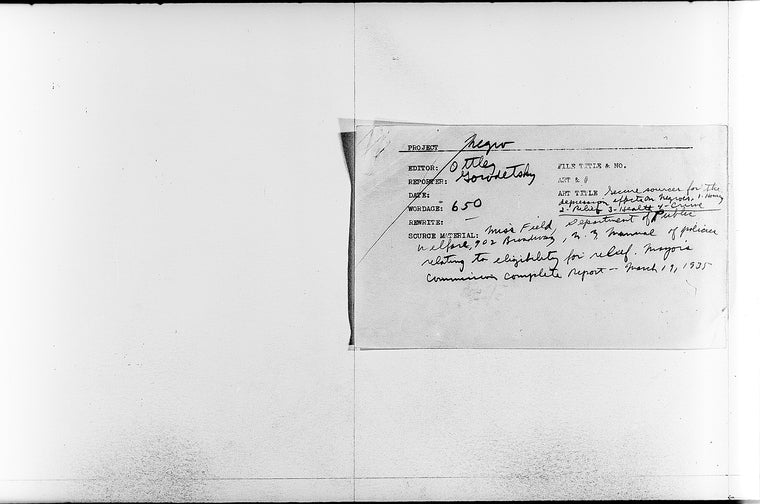 PROJECT Negro
EDITOR: Ottley
REPORTER: Gorodetsky
DATE:
WORDAGE: 650
REWRITE: —
FILE TITLE & NO.
ART & #
ART TITLE Secure sources for the
depression effect on Negroes, 1-
2-Relief 3-Health 4-Crime
SOURCE MATERIAL: Miss Field, Department of Public
Welfare, 902 Broadway, N.Y. Manual of policies
relating to eligibility for relief. Mayor's
Commission complete report — March 19, 1935